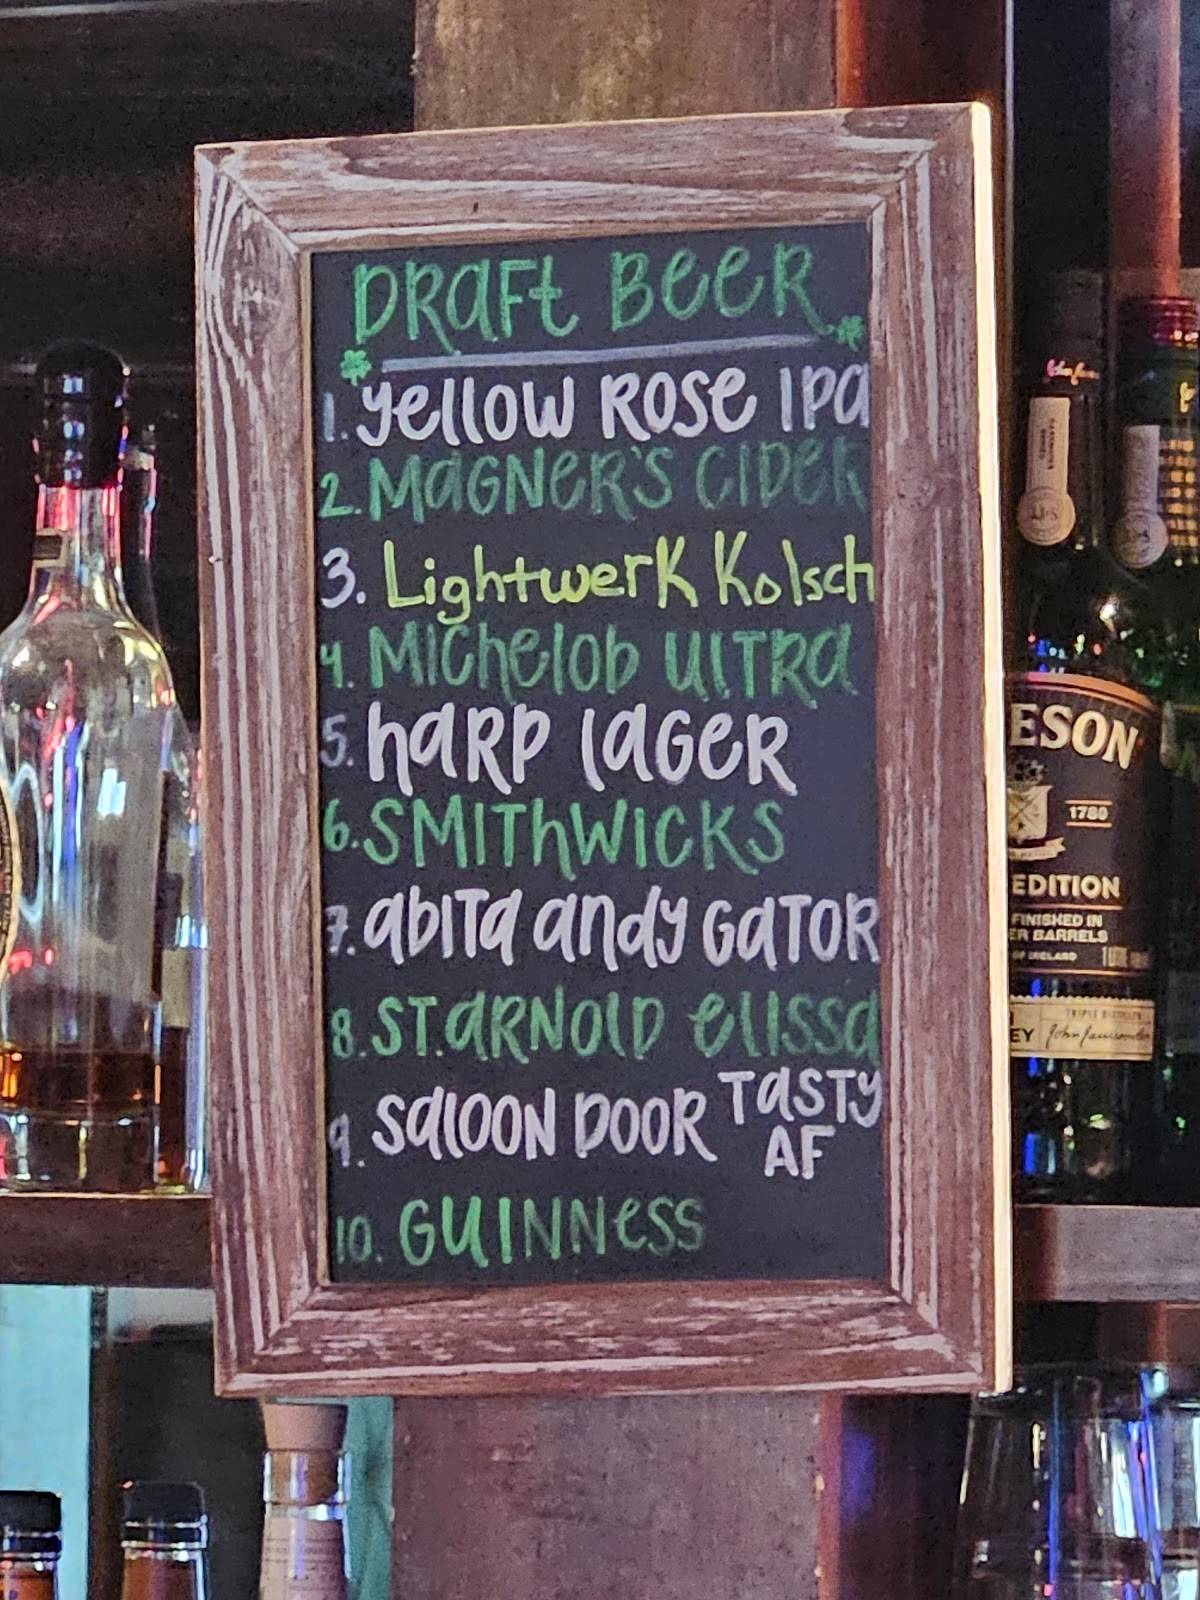 DRaFt BeeR
1. yellow ROSe IPa
2. MaGNeR'S CIDeR
3. Lightwerk Kolsch
4. MIChelob UlTRa
5. haRP laGeR
6. SMIThWICKS
7. abITa andy GaTOR
8. ST. aRNOlD elISSa
9. SalOON DOOR TaSTy
AF
10. GUINNeSS
ESON
1780
EDITION
FINISHED IN
ER BARRELS
OF IRELAND
EY
TRIPLE DISTILLED
John Jameson